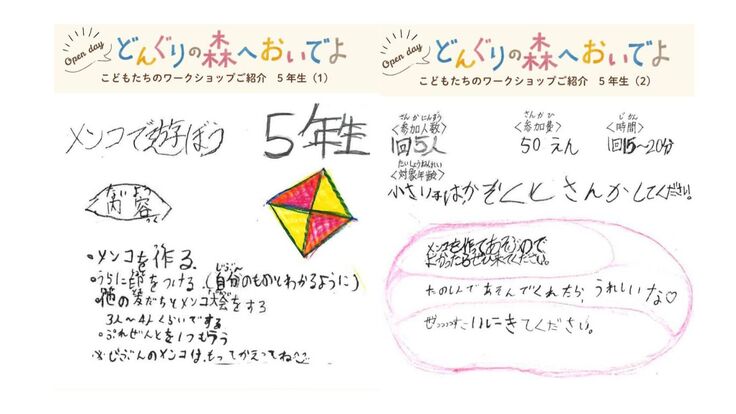 Open day
どんぐりの森へおいでよ
こどもたちのワークショップご紹介 5年生（1）
メンコで遊ぼう 5年生
ないよう
内容
・メンコを作る
・うらに印をつける（自分のものとわかるように）
じぶん
・他の友だちとメンコ大会をする
3人〜4人くらいでする
・ぷれぜんとを1つもらう
※じぶんのメンコは、もってかえってね
Open day
どんぐりの森へおいでよ
こどもたちのワークショップご紹介 5年生（2）
さんかにんずう
〈参加人数〉
1回5人
さんかひ
〈参加費〉
50えん
じかん
〈時間〉
1回15〜20分
たいしょうねんれい
〈対象年齢〉
小さい子はかぞくとさんかしてください。
メンコを作ってあそぶので
よかったらぜひ来てください。
たのしんであそんでくれたら、うれしいな♡
ぜっっったいにきてください。